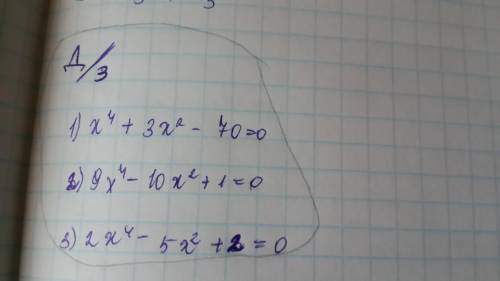 Д/з
1) x⁴ + 3x² - 70=0
2) 9x⁴ - 10x² + 1 = 0
3) 2x⁴ - 5x² + 2 = 0